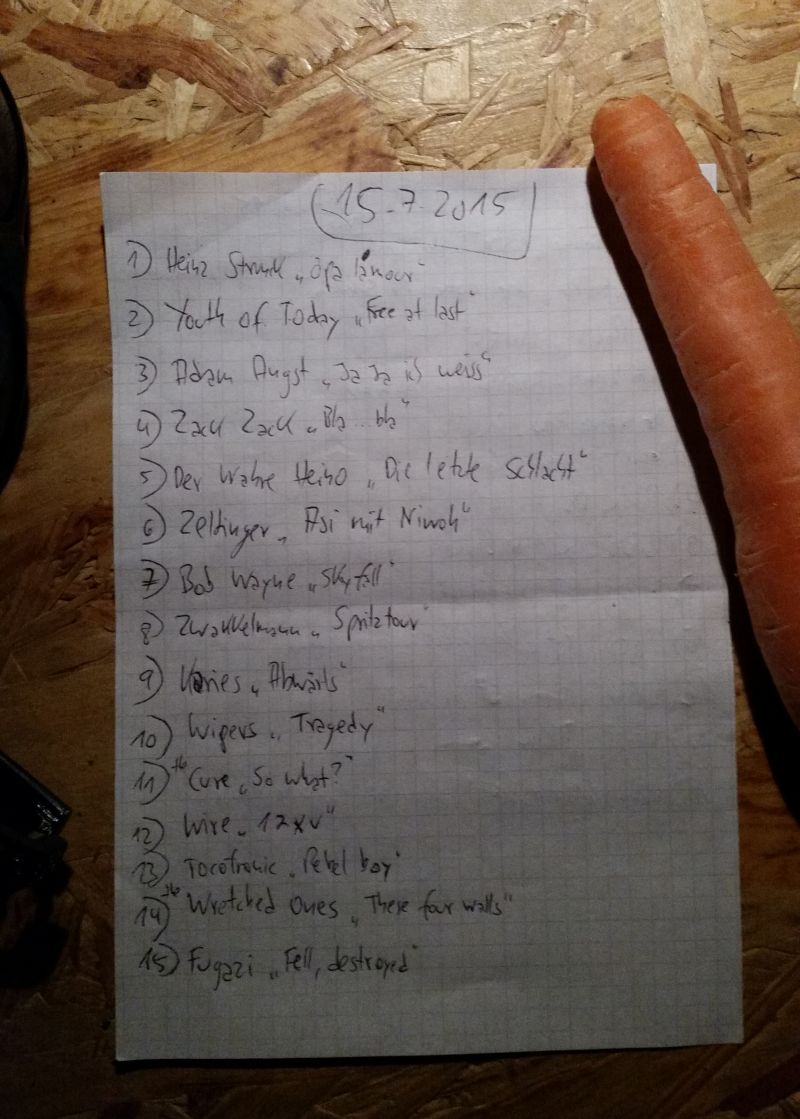 15.7.2015
1) Heinz Strunk „Opa
2) Youth of Today „Free at last“
3) Adam Angst „Ja Ja ich weiss“
4) Zack Zack „Bla...bla“
5) Der wahre Heino „Die letzte Schlacht“
6) Zeltinger „Asi mit Niwoh“
7) Bob Wayne „Skyfall“
8) Zwakkelmann „Spritztour“
9) „Abwärts“
10) Wipers „Tragedy“
11) the Cure „So what?“
12) Wire „12XU“
13) Tocotronic „Rebel boy“
14) the Wretched Ones „These four walls“
15) Fugazi „Fell, destroyed“